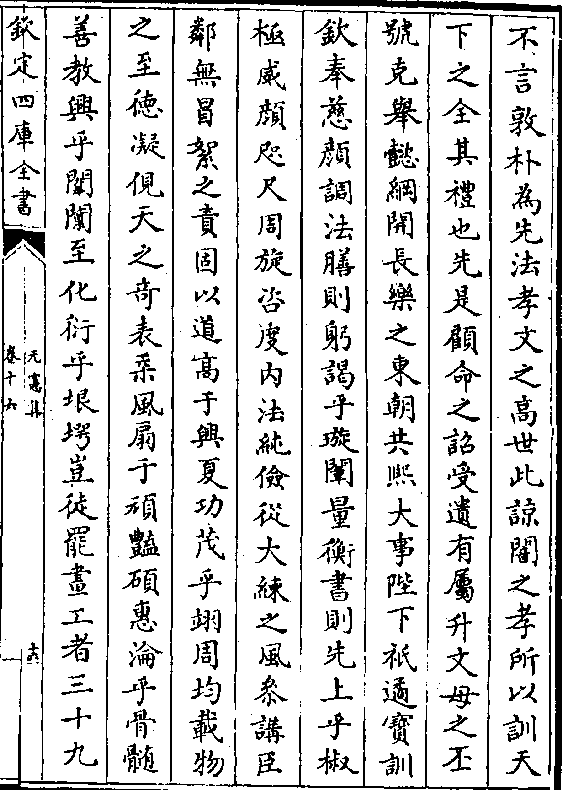 不言敦朴為先法孝文之高世此諒闇之孝所以訓天
下之全其禮也先是顧命之詔受遺有屬升文母之丕
號克舉懿綱開長樂之東朝共熙大事陛下祇遹寶訓
欽奉慈顔調法膳則躬謁乎璇闈量衡書則先上乎椒
極威顔咫尺周旋咨度内法純儉從大練之風參講臣
鄰無冒絮之責固以道高于興夏功茂乎翊周均載物
之至徳凝俔天之奇表柔風扇于頑豔碩惠淪乎骨髄
善教興乎闈闥至化衍乎垠堮豈徒罷畫工者三十九
欽定四庫全書
元憲集
卷十六